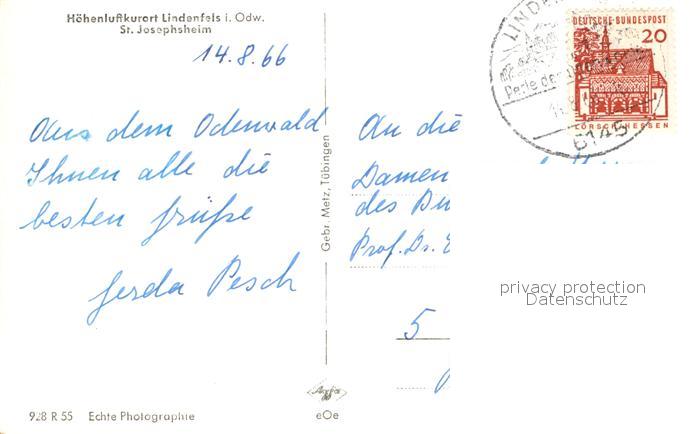 Höhenluftkurort Lindenfels i. Odw.
St. Josephsheim
14.8.66
Aus dem Odenwald
Ihnen alle die
besten Grüße
Gerda Pesch
Gebr. Metz, Tübingen
An die
Damen
des
Prof. Dr.
5
LINDEN
Perle des
6145
DEUTSCHE BUNDESPOST
20
LORSCH/HESSEN
privacy protection
Datenschutz
Agfa
928 R 55 Echte Photographie
eOe